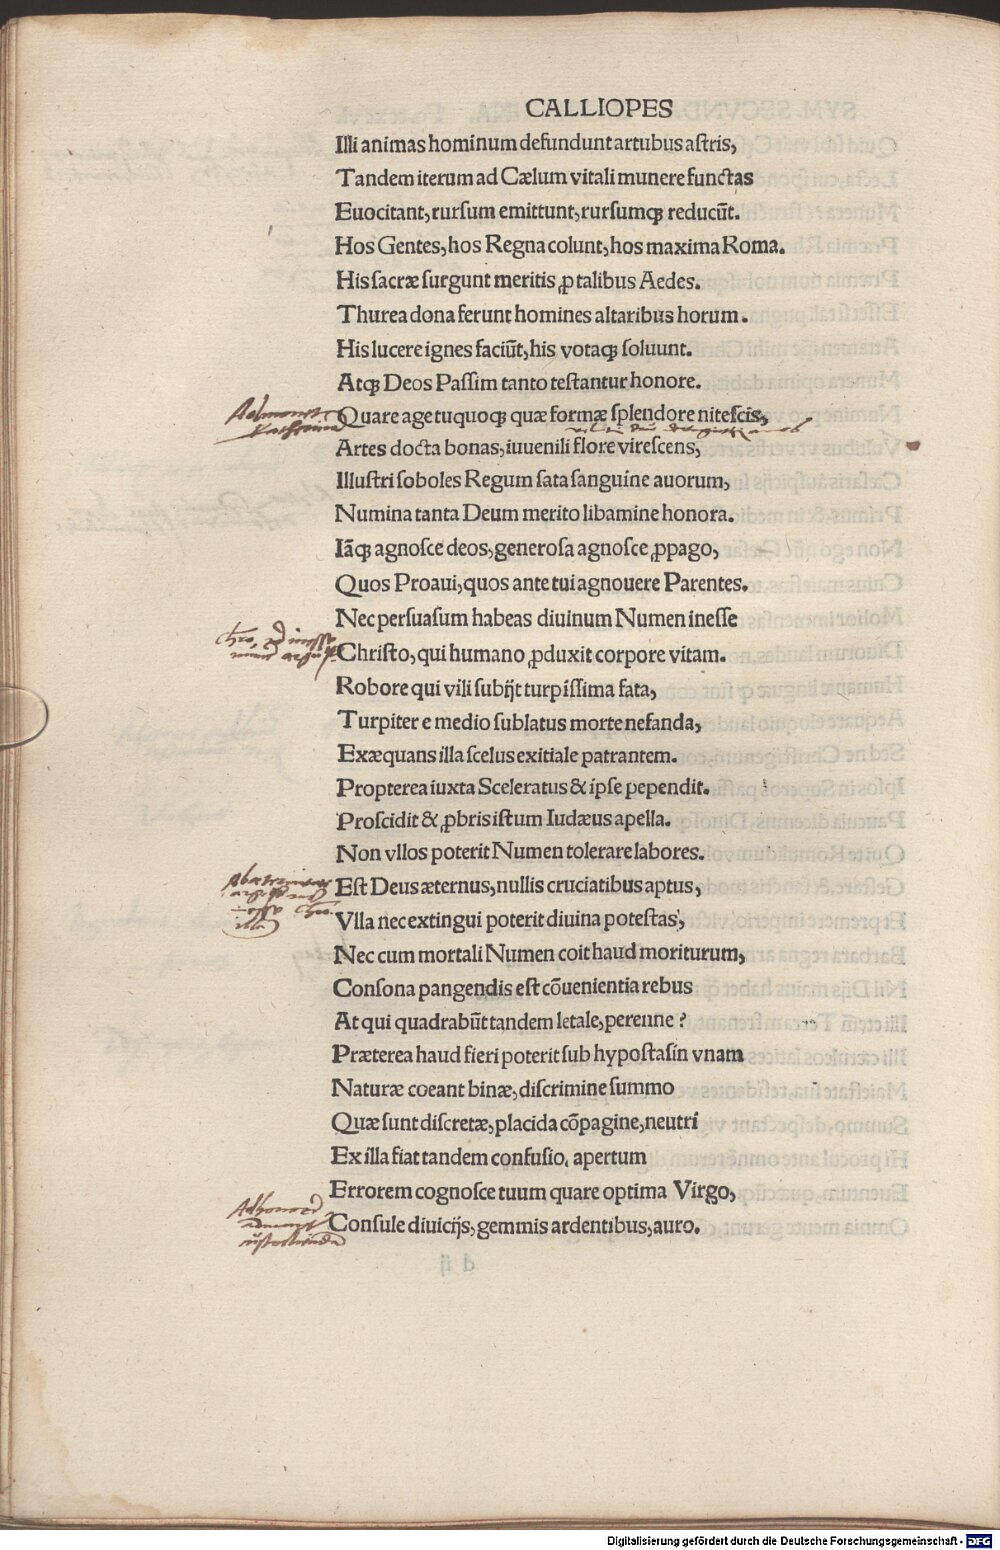 CALLIOPES
Illi animas hominum defundunt artubus astris,
Tandem iterum ad Cælum vitali munere functas
Euocitant, rursum emittunt, rursumqꝫ reducūt.
Hos Gentes, hos Regna colunt, hos maxima Roma.
His sacræ surgunt meritis ꝓ talibus Aedes.
Thurea dona ferunt homines altaribus horum.
His lucere ignes faciūt, his votaqꝫ soluunt.
Atqꝫ Deos Passim tanto testantur honore.
Quare age tu quoqꝫ quæ formæ splendore nitescis,
Artes docta bonas, iuuenili flore virescens,
Illustri soboles Regum sata sanguine auorum,
Numina tanta Deum merito libamine honora.
Iāqꝫ agnosce deos, generosa agnosce ꝓpago,
Quos Proaui, quos ante tui agnouere Parentes.
Nec persuasum habeas diuinum Numen inesse
Christo, qui humano ꝓduxit corpore vitam.
Robore qui vili subijt turpissima fata,
Turpiter e medio sublatus morte nefanda,
Exæquans illa scelus exitiale patrantem.
Propterea iuxta Sceleratus & ipse pependit.
Proscidit & ꝓbris istum Iudæus apella.
Non vllos poterit Numen tolerare labores.
Est Deus æternus, nullis cruciatibus aptus,
Vlla nec extingui poterit diuina potestas,
Nec cum mortali Numen coit haud moriturum,
Consona pangendis est cōuenientia rebus
At qui quadrabūt tandem letale, perenne?
Præterea haud fieri poterit sub hypostasin vnam
Naturæ coeant binæ, discrimine summo
Quæ sunt discretæ, placida cōpagine, neutri
Ex illa fiat tandem confusio. apertum
Errorem cognosce tuum quare optima Virgo,
Consule diuicijs, gemmis ardentibus, auro.
Digitalisierung gefördert durch die Deutsche Forschungsgemeinschaft - DFG